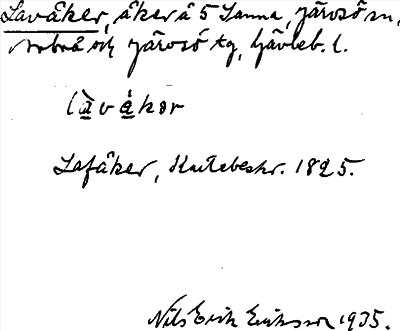 Lavåker, åker å 5 Sanna, Järvsö sn,
Arbrå och Järvsö tg, Gävleb. l.
làvákər
Lafåker, Kartebeskr. 1825.
Nils Erik Eriksson 1935.